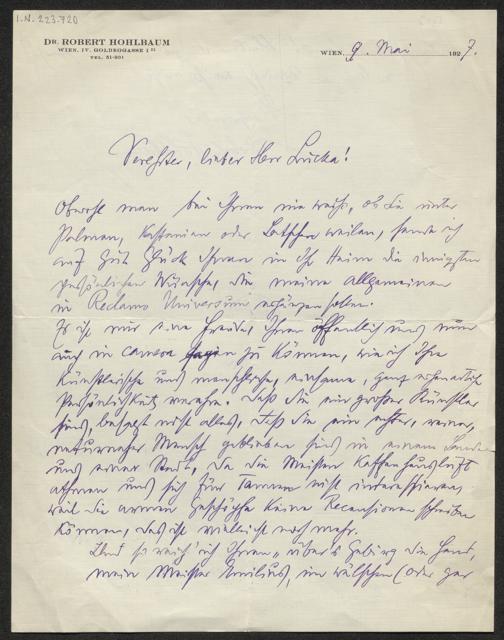 I.N. 223.720
DR. ROBERT HOHLBAUM
WIEN, IV. GOLDEGGASSE 1
TEL. 51-801
WIEN, 9. Mai 1927.
Verehrter, lieber Herr Lucka!
Obwohl man bei Ihnen nie weiß, ob Sie unter
Palmen, Kastanien oder Latschen weilen, sende ich
auf gut Glück Ihnen in Ihr Heim die innigsten
persönlichen Wünsche, die meine allgemeinen
in Reclams Universum ergänzen sollen.
Es ist mir eine Freude, Ihnen öffentlich und nun
auch in camera sagen zu können, wie ich Ihre
künstlerische und menschliche, einsame, ganz eigenartige
Persönlichkeit verehre. Daß Sie ein großer Künstler
sind, besagt nicht alles, daß Sie ein echter, reiner,
naturnaher Mensch geblieben sind in einem Lande
und einer Stadt, da die Meisten Kaffeehausluft
atmen und sich für Tannen nicht interessieren,
weil die armen Geschöpfe keine Recensionen schreiben
können, das ist vielleicht noch mehr.
Und so reich' ich Ihnen „übers Gebirg" die Hand,
mein Meister Emilius, im wälschen (oder gar